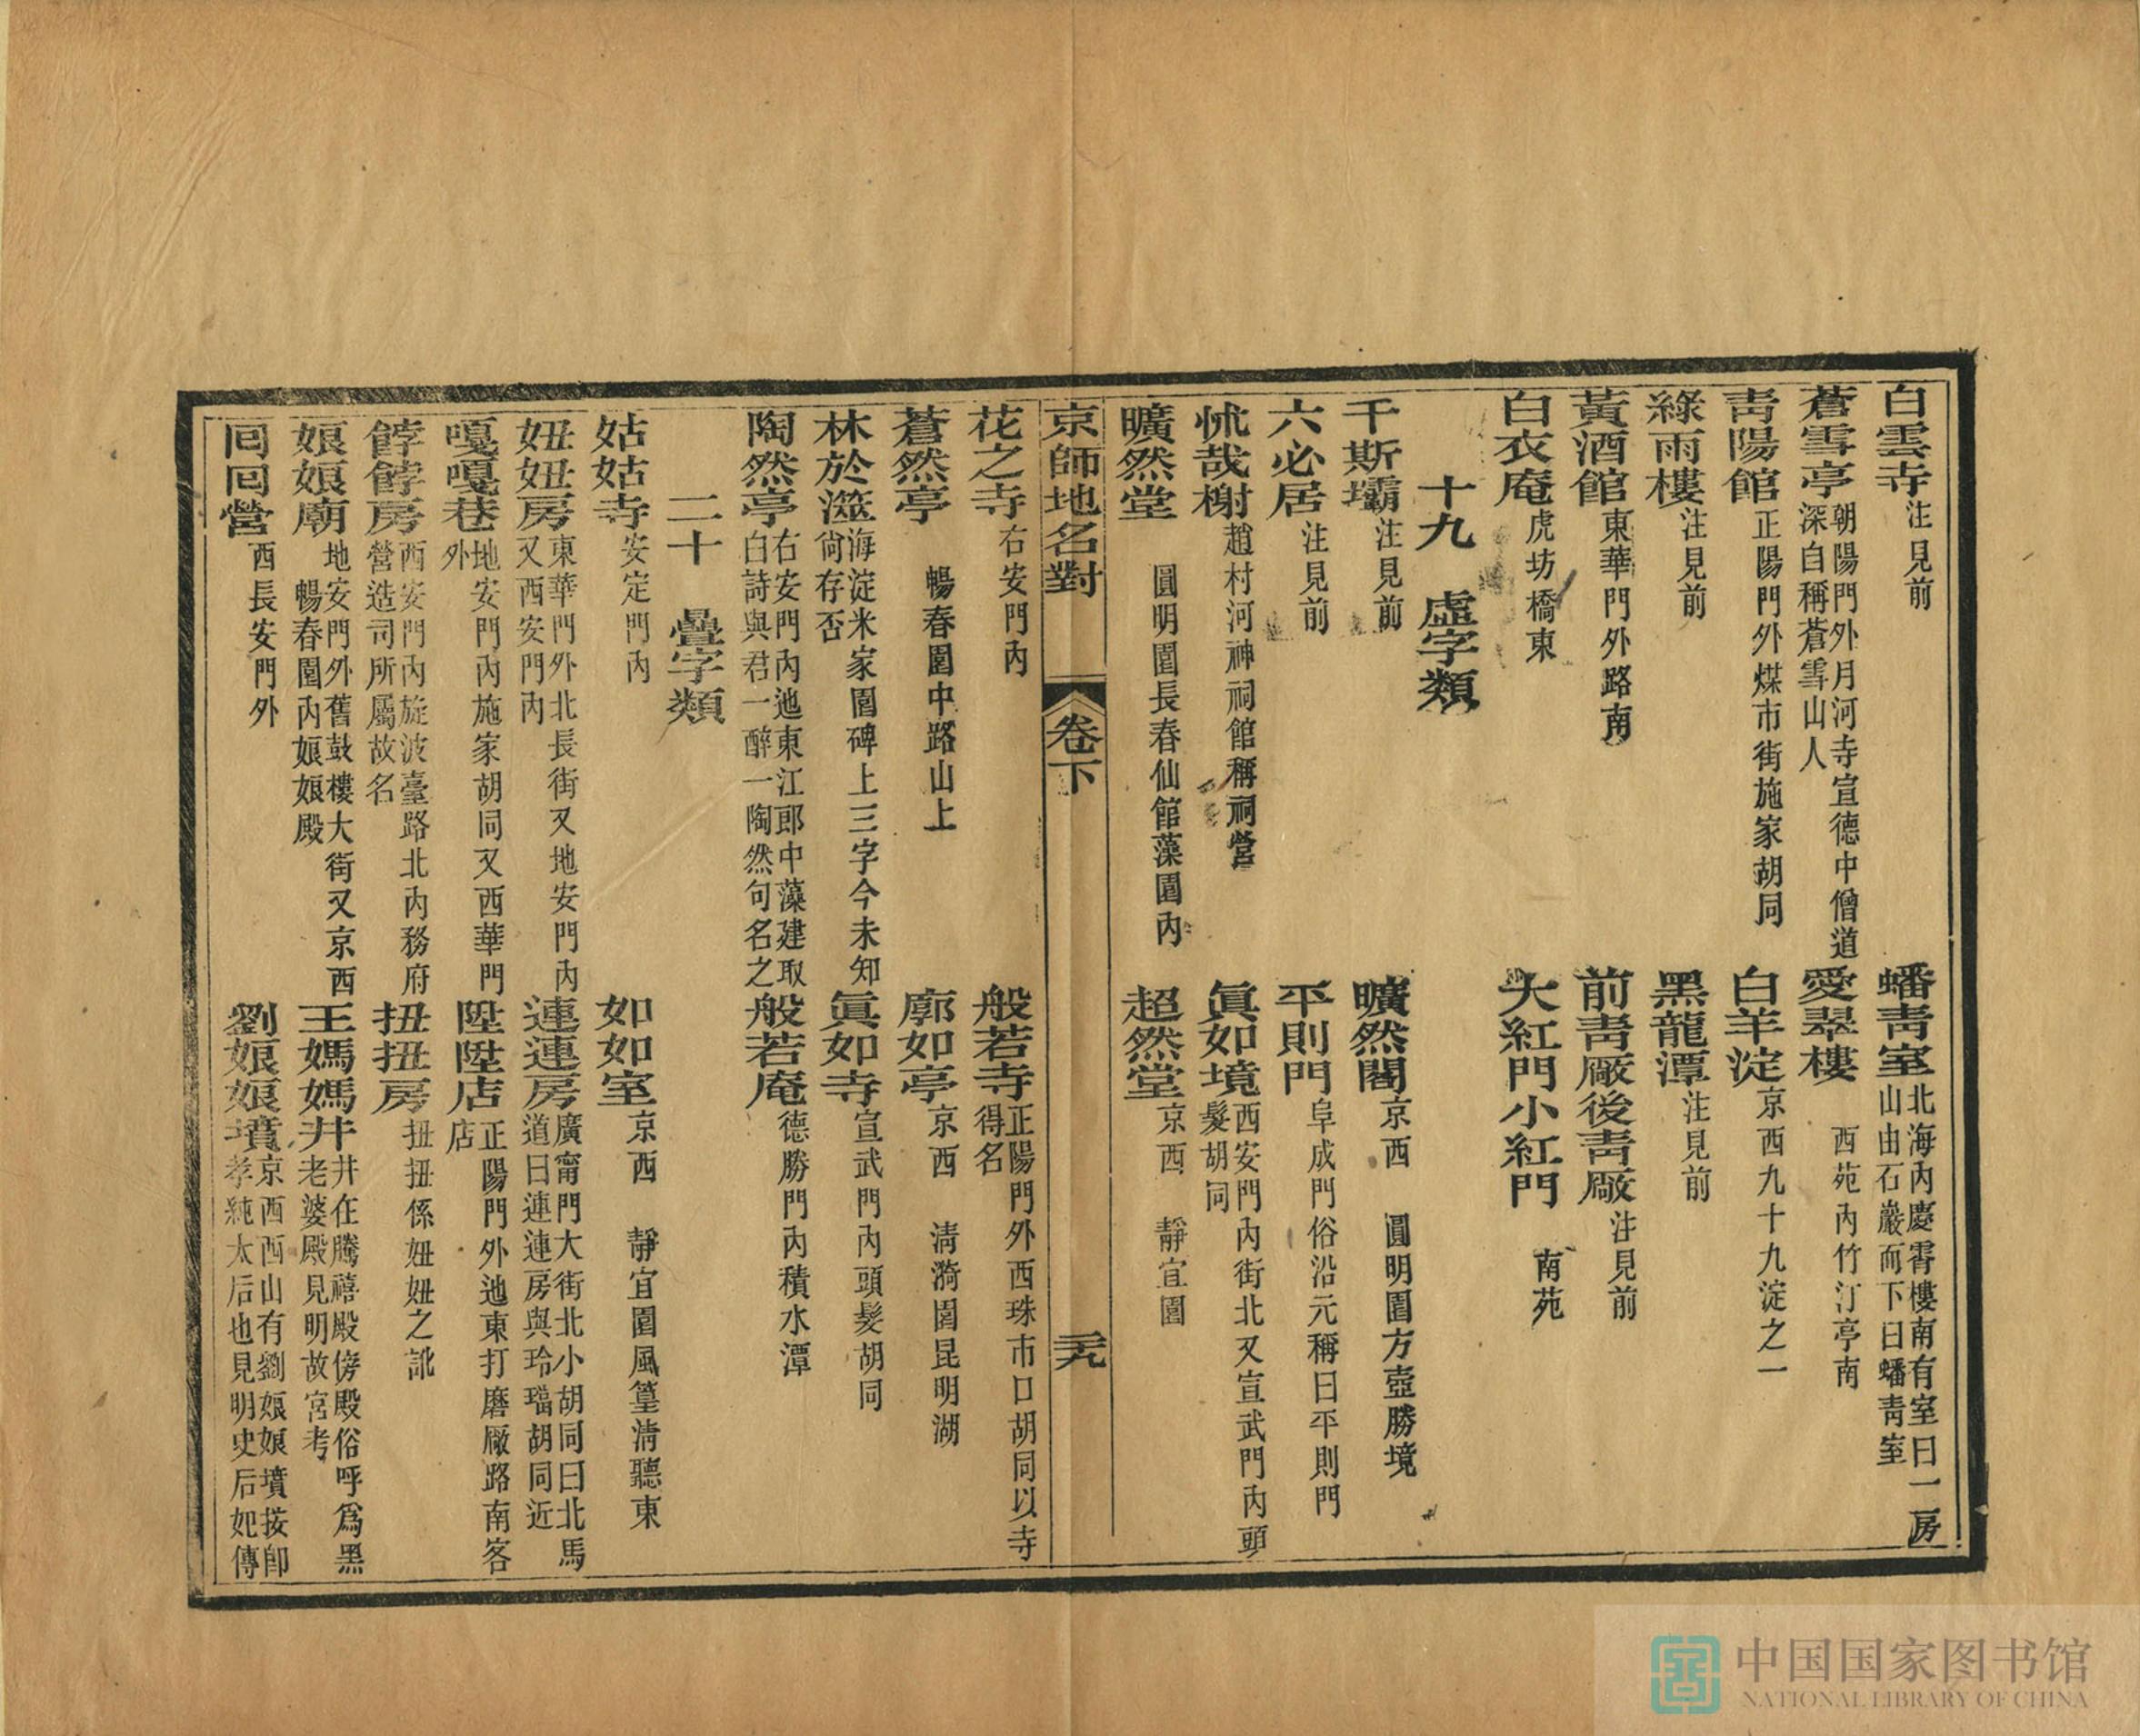 白雲寺注見前　蟠青室北海內慶霄樓南有室曰一房山由石巖而下曰蟠青室
蒼雪亭朝陽門外月河寺宣德中僧道深自稱蒼雪山人　愛翠樓西苑內竹汀亭南
青陽館正陽門外煤市街施家胡同　白羊淀京西九十九淀之一
綠雨樓注見前　黑龍潭注見前
黃酒館東華門外路南　前青厰後青厰注見前
白衣庵虎坊橋東　大紅門小紅門南苑
十九　虛字類
千斯壩注見前　曠然閣京西　圓明園方壺勝境
六必居注見前　平則門阜成門俗沿元稱曰平則門
怵哉榭趙村河神祠館稱祠營　眞如境西安門內街北又宣武門內頭髮胡同
曠然堂圓明園長春仙館藻園內　超然堂京西　靜宜園
京師地名對　卷下　三九
花之寺右安門內　般若寺正陽門外西珠市口胡同以寺得名
蒼然亭暢春園中路山上　廓如亭京西　清漪園昆明湖
林於澨海淀米家園碑上三字今未知尙存否　眞如寺宣武門內頭髮胡同
陶然亭右安門內池東江郎中藻建取白詩與君一醉一陶然句名之　般若庵德勝門內積水潭
二十　疊字類
姑姑寺安定門內　如如室京西　靜宜園風篁清聽東
妞妞房東華門外北長街又地安門內又西安門內　連連房廣甯門大街北小胡同曰北馬道曰連連房與玲瑞胡同近
嘎嘎巷地安門內施家胡同又西華門外　陞陞店正陽門外池東打磨厰路南客店
餑餑房西安門內旋波臺路北內務府營造司所屬故名　扭扭房扭扭係妞妞之訛
娘娘廟地安門外舊鼓樓大街又京西暢春園內娘娘殿　王媽媽井井在騰禧殿傍殿俗呼爲黑老婆殿見明故宮考
回回營西長安門外　劉娘娘墳京西西山有劉娘娘墳按卽孝純太后也見明史后妃傳
中国国家图书馆
NATIONAL LIBRARY OF CHINA